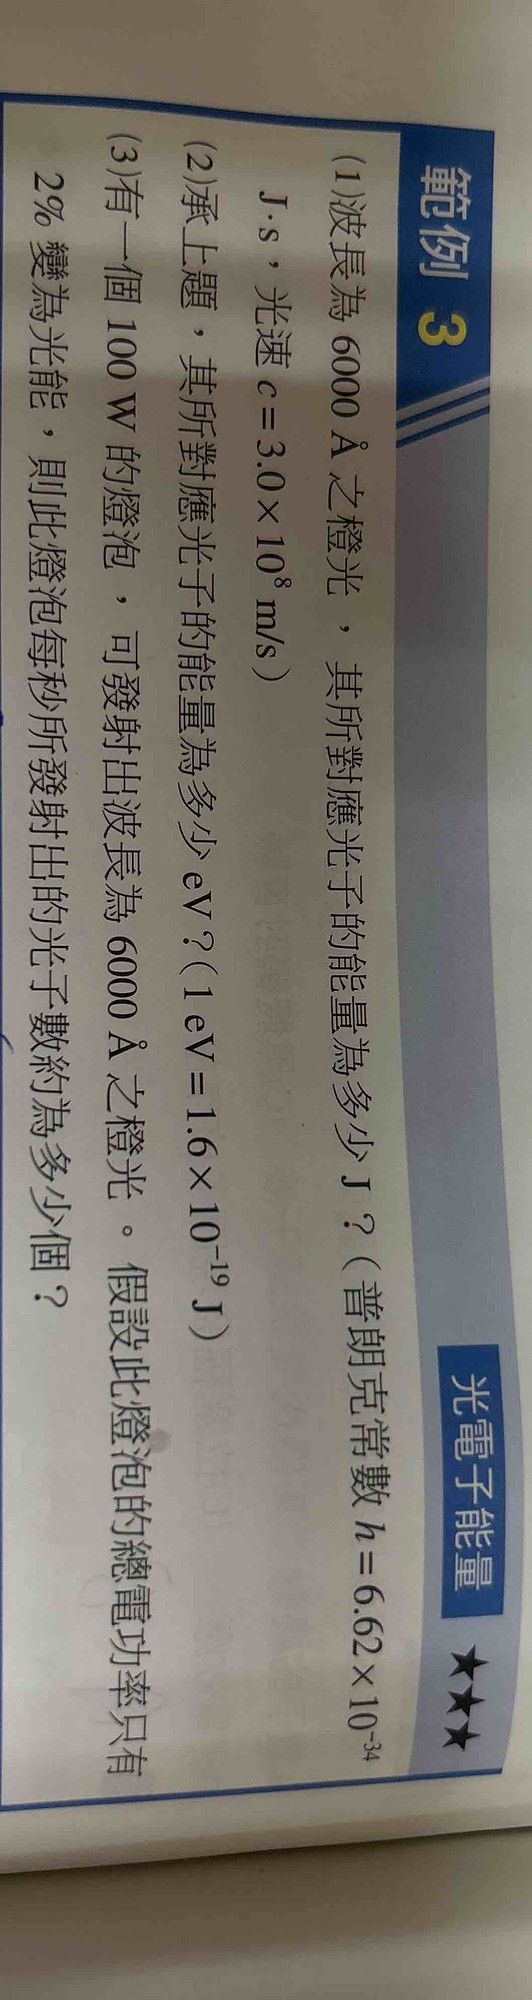 範例 3
光電子能量 ★★★
(1)波長為 6000 Å 之橙光，其所對應光子的能量為多少 J？（普朗克常數 h＝6.62×10⁻³⁴
J·s，光速 c＝3.0×10⁸ m/s）
(2)承上題，其所對應光子的能量為多少 eV？（1 eV＝1.6×10⁻¹⁹ J）
(3)有一個 100 W 的燈泡，可發射出波長為 6000 Å 之橙光。假設此燈泡的總電功率只有
2% 變為光能，則此燈泡每秒所發射出的光子數約為多少個？